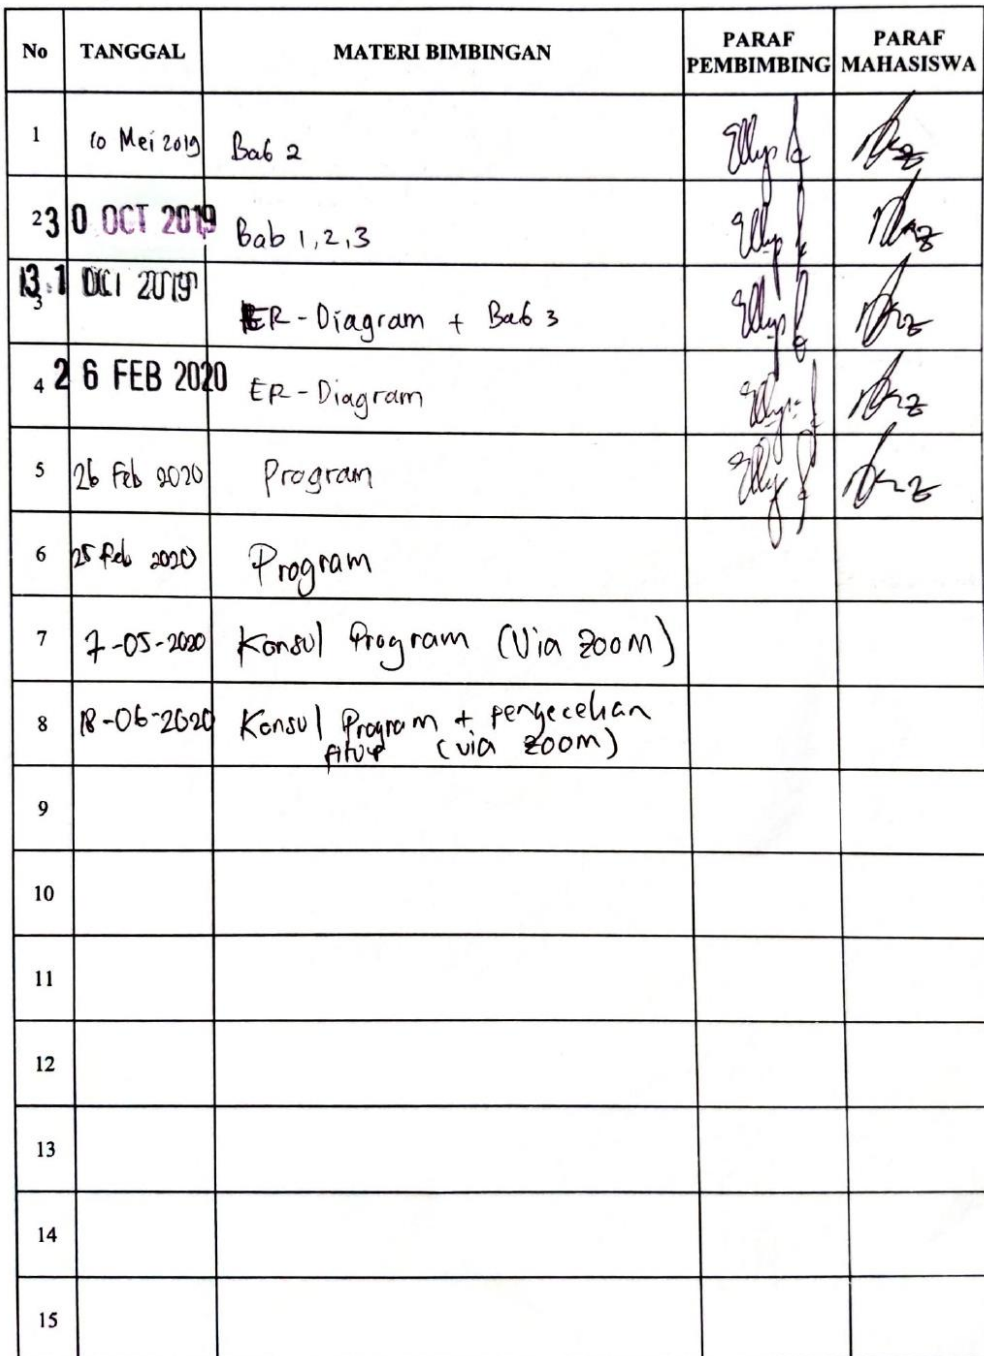 No TANGGAL MATERI BIMBINGAN PARAF PEMBIMBING PARAF MAHASISWA
1 10 Mei 2019 Bab 2
2 30 OCT 2019 Bab 1,2,3
3 2019 ER-Diagram + Bab 3
4 26 FEB 2020 ER-Diagram
5 26 Feb 2020 Program
6 Feb 2020 Program
7 7-05-2020 Konsul Program (Via zoom)
8 18-06-2020 Konsul Program + pengecekan
(via zoom)
9
10
11
12
13
14
15